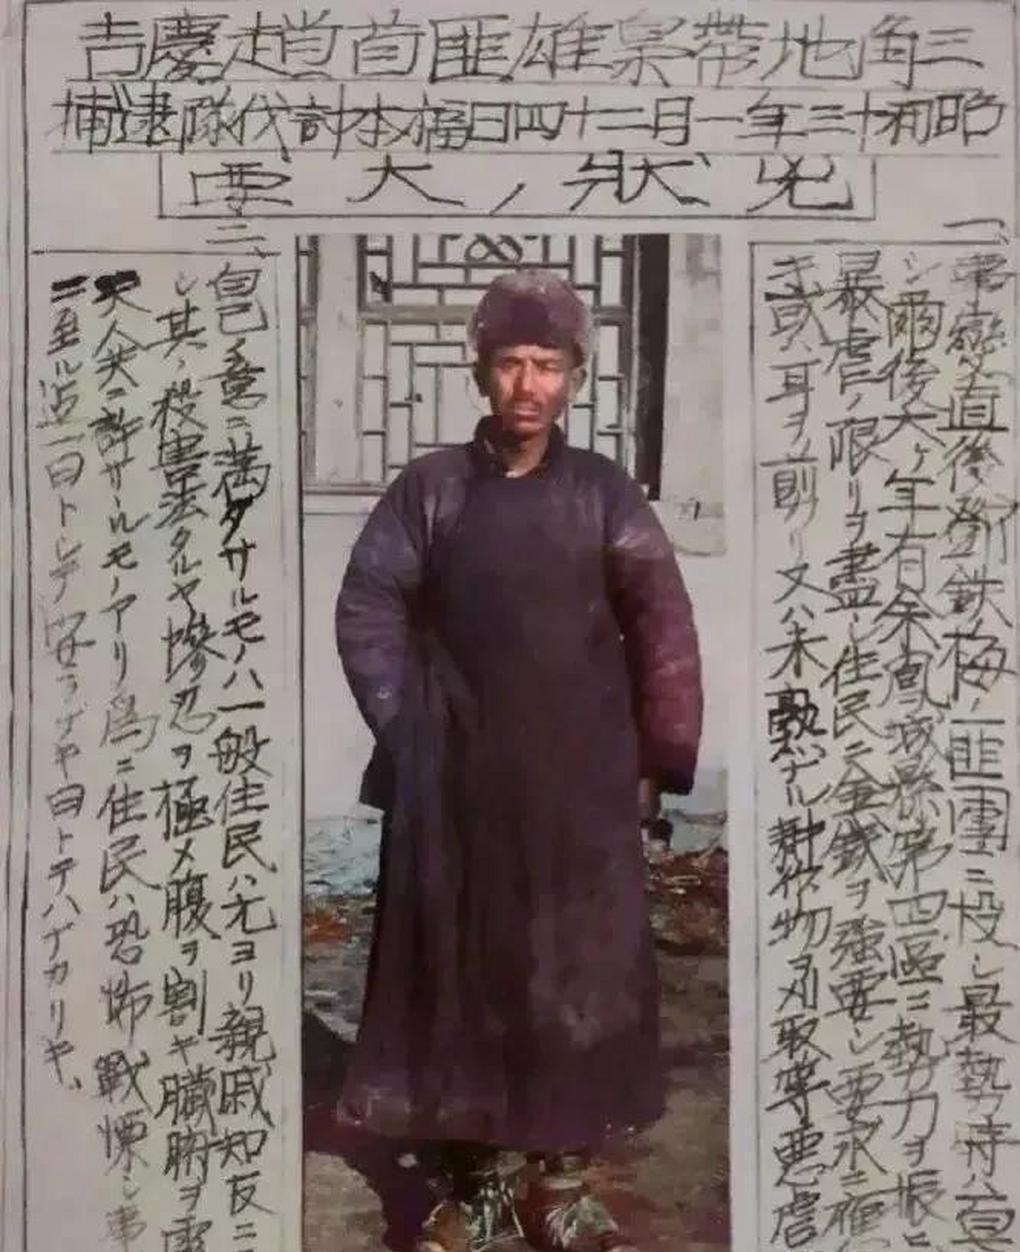 三角地帶梟雄匪首趙慶吉
昭和十三年一月二十四日橋本討伐隊逮捕
兇狀ノ大要
一、
事變直後鄧鉄梅ノ匪團ニ投シ最勢時ハ百
シ爾後六ヶ年有余鳳城縣第四區ニ勢力ヲ振ヒ
暴虐ノ限リヲ盡シ住民ニ金錢ヲ強要シ要求ニ
キ或ハ耳ヲ削リ又ハ未熟ナル耕作物刈取等悪虐
二、
自己ノ意ニ満タサルモノハ一般住民ハ元ヨリ親戚知友ニ
シ其ノ殺害法タルヤ慘忍ヲ極メ腹ヲ割キ臓腑ヲ露
天人共ニ許サヾルモノアリ爲ニ住民ハ恐怖戰慄シ事
ニ至ル迄一日トシテ安ラゲキ日トテハナカリキ、